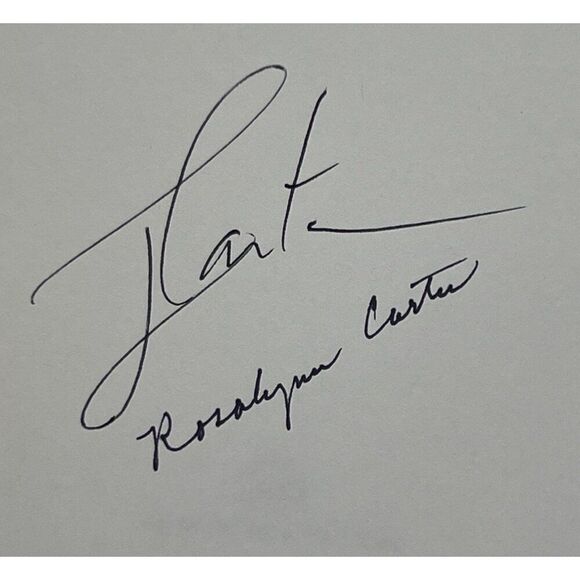 J Carter
Rosalynn Carter